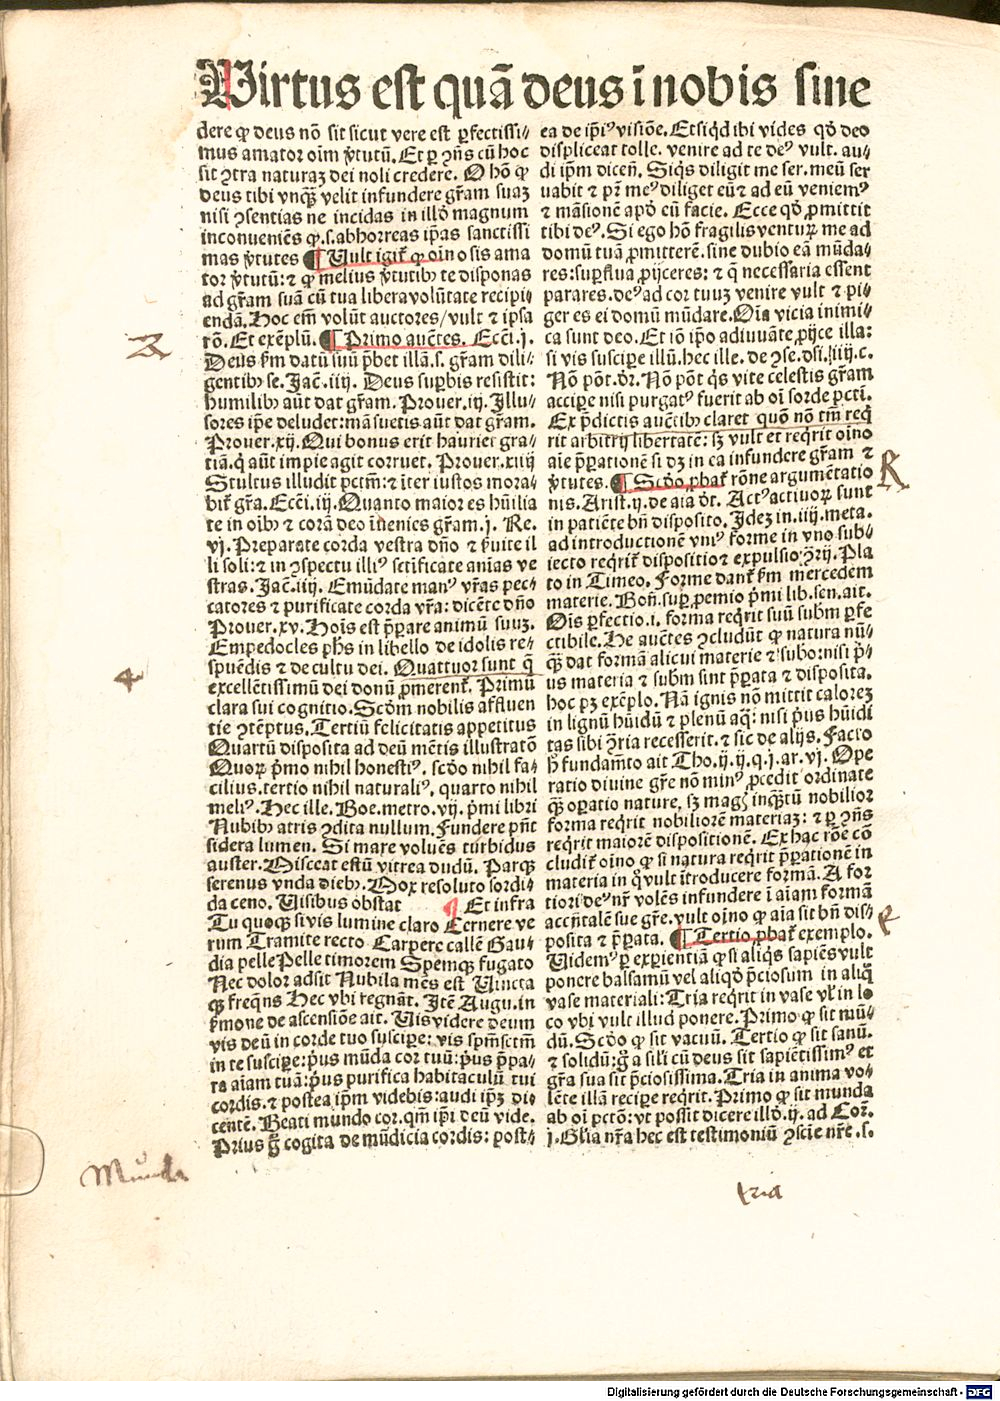 Virtus est quā deus ī nobis sine
dere ꝙ deus nō sit sicut vere est ꝑfectissi⸗
mus amator oīm v̓tutū. Et ꝑ ↄn̄s cū hoc
sit ↄtra naturaꝫ dei noli credere. O hō ꝙ
deus tibi vnqꝫ̄ velit infundere gr̄am suaꝫ
nisi ↄsentias ne incidas in illd̓ magnum
inconueniēs ꝙ.s.abhorreas ip̄as sanctissi
mas v̓tutes ¶ Uult igit᷑ ꝙ oīno sis ama
tor v̓tutū: ⁊ ꝙ melius v̓tutibꝫ te disponas
ad gr̄am suā cū tua libera volūtate recipi⸗
endā. Hoc em̄ volūt auctores/vult ⁊ ipsa
rō. Et exēplū. ¶ Primo auc̄tes. Ecc̄i.j.
Deus ẜm datū suū p̄bet illā.s. gr̄am dili⸗
gentibꝫ se. Jac̄.iiij. Deus suꝑbis resistit:
humilibꝫ aūt dat gr̄am. Prouer.iij. Illu⸗
sores ip̄e deludet: māsuetis aūt dat gr̄am.
Prouer.xij. Qui bonus erit hauriet gra⸗
tiā.q̇ aūt impie agit corruet. Prouer.xiiij
Stultus illudit pctm̄: ⁊ īter iustos mora⸗
bit᷑ gr̄a. Ecc̄i.iij. Quanto maior es hūilia
te in oībꝫ ⁊ corā deo īuenies gr̄am.j. Re.
vj. Preparate corda vestra dn̄o ⁊ ẜuite il
li soli: ⁊ in ↄspectu illiꝰ sctificate an̄ias ve
stras. Jac̄.iiij. Emūdate manꝰ vr̄as pec⸗
catores ⁊ purificate corda vr̄a: dicēte dn̄o
Prouer.xv. Hoīs est p̄ꝑare animū suuꝫ.
Empedocles ph̄s in libello de idolis re⸗
spuēdis ⁊ de cultu dei. Quattuor sunt q̄
excellētissimū dei donū ꝓmerent᷑. Primū
clara sui cognitio. Scd̓m nobilis affluen
tie ↄtēptus. Tertiū felicitatis appetitus
Quartū disposita ad deū mētis illustratō
Quoꝝ p̄mo nihil honestiꝰ. scd̓o nihil fa⸗
cilius. tertio nihil naturaliꝰ. quarto nihil
meliꝰ. Hec ille. Boe. metro. vij. p̄mi libri
Nubibꝫ atris ↄdita nullum. Fundere pn̄t
sidera lumen. Si mare voluēs turbidus
auster. Misceat estū vitrea dudū. Parqꝫ
serenus vnda diebꝫ. Mox resoluto sordi⸗
da ceno. Visibus obstat ¶ Et infra
Tu quoqꝫ si vis lumine claro Cernere ve
rum Tramite recto Carpere callē Gau⸗
dia pelle Pelle timorem Spemqꝫ fugato
Nec dolor adsit Nubila mēs est Vincta
qꝫ freq̄ns Hec vbi regnāt. Itē Augu. in
ẜmone de ascensiōe ait. Uis videre deum
vis deū in corde tuo susciꝑe: vis spm̄sctm̄
in te susciꝑe: p̓us mūda cor tuū: p̓us p̄ꝑa⸗
ra aīam tuā: p̓us purifica habitaculū tui
cordis. ⁊ postea ip̄m videbis: audi ip̄ꝫ di⸗
centē. Beati mundo cor. qm̄ ip̄i deū vide.
Prius g̊ cogita de mūdicia cordis: post⸗
ea de ip̄iꝰ visiōe. Etsiq̇d ibi vides qd̓ deo
displiceat tolle. venire ad te deꝰ vult. au⸗
di ip̄m dicen̄. Siq̇s diligit me ser. meū ser
uabit ⁊ pr̄ meꝰ diliget eū ⁊ ad eū veniemꝰ
⁊ māsionē apd̓ eū facie. Ecce qd̓ ꝓmittit
tibi deꝰ. Si ego hō fragilis venturꝝ me ad
domū tuā ꝓmitterē. sine dubio eā mūda⸗
res: suꝑflua ꝓijceres: ⁊ q̄ necessaria essent
parares. deꝰ ad cor tuuꝫ venire vult ⁊ pi⸗
ger es ei domū mūdare. Oīa vicia inimi⸗
ca sunt deo. Et iō ip̄o adiuuāte ꝓijce illa:
si vis susciꝑe illū. hec ille. de ↄse. dsī. iiij. c.
Nō pōt. dr̄. Nō pōt q̇s vite celestis gr̄am
acciꝑe nisi purgatꝰ fuerit ab oī sorde pctī.
Ex p̄dictis auc̄tibꝫ claret quō nō tm̄ req̇
rit arbitrij libertatē: sꝫ vult et req̇rit oīno
aīe p̄ꝑationē si dꝫ in ea infundere gr̄am ⁊
v̓tutes. ¶ Scd̓o ꝓbat᷑ rōne argumētatio
nis. Arist. ij. de aīa dt̄. Actꝰ actiuoꝝ sunt
in patiēte bn̄ disposito. Idez in. iiij. meta.
ad introductionē vniꝰ forme in vno sub⸗
iecto req̇rit᷑ dispositio ⁊ expulsio ↄ̄rij. Pla
to in Timeo. Forme dant᷑ ẜm mercedem
materie. Bon̄. suꝑ ꝓemio p̄mi lib. sen. ait.
Oīs ꝑfectio. i. forma req̇rit suū subm̄ ꝑfe
ctibile. He auc̄tes ↄcludūt ꝙ natura nū⸗
qꝫ̄ dat formā alicui materie ⁊ subo: nisi p̓⸗
us materia ⁊ subm̄ sint p̄ꝑata ⁊ disposita.
hoc pꝫ exēplo. Nā ignis nō mittit calorez
in lignū hūidū ⁊ plenū aq̄: nisi p̓us hūidi
tas sibi ↄ̄ria recesserit. ⁊ sic de alijs. Facto
h̓ fundam̄to ait Tho. ij. ij. q. j. ar. vj. Ope
ratio diuine gr̄e nō minꝰ ꝓcedit ordinate
qꝫ̄ oꝑatio nature, sꝫ magꝭ inqꝫ̄tū nobilior
forma req̇rit nobiliorē materiaꝫ: ⁊ ꝑ ↄn̄s
req̇rit maiorē dispositionē. Ex hac rōe cō
cludit᷑ oīno ꝙ si natura req̇rit p̄ꝑationē in
materia in q̇ vult ītroducere formā. A for
tiori deꝰ nr̄ volēs infundere ī aīam formā
accn̄talē sue gr̄e. vult oīno ꝙ aīa sit bn̄ dis⸗
posita ⁊ p̄ꝑata. ¶ Tertio ꝓbat᷑ exemplo.
Videmꝰ ꝑ exꝑientiā ꝙ si aliq̇s sapiēs vult
ponere balsamū vel aliqd̓ p̄ciosum in aliq̊
vase materiali: Tria req̇rit in vase vl̓ in lo
co vbi vult illud ponere. Primo ꝙ sit mū⸗
dū. Scd̓o ꝙ sit vacuū. Tertio ꝙ sit sanū.
⁊ solidū: g̊ a sil̓i cū deus sit sapiētissimꝰ et
gr̄a sua sit p̄ciosissima. Tria in anima vo⸗
lēte illā reciꝑe req̇rit. Primo ꝙ sit munda
ab oī pctō: vt possit dicere illd̓. ij. ad Cor̄.
j. Gl̓ia nr̄a hec est testimoniū ↄscie nr̄e. s.
4
Munda
tria
Digitalisierung gefördert durch die Deutsche Forschungsgemeinschaft - DFG